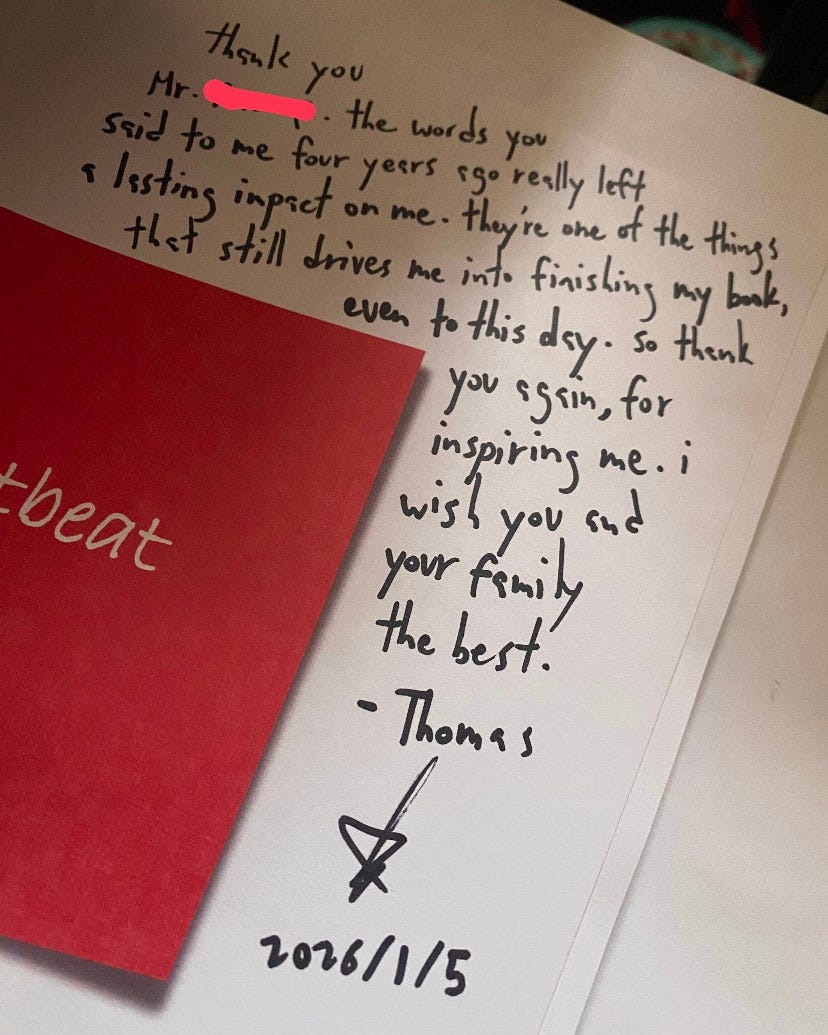 thank you
Mr. . the words you
said to me four years ago really left
a lasting impact on me. they're one of the things
that still drives me into finishing my book,
even to this day. so thank
you again, for
inspiring me. i
wish you and
your family
the best.
- Thomas
2026/1/5
tbeat